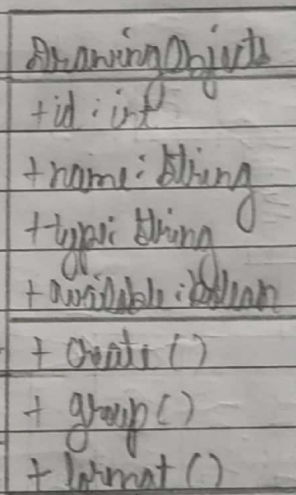 DrawingObjects
+id : int
+name : String
+type : String
+available : boolean
+ create ()
+ group ()
+ format ()